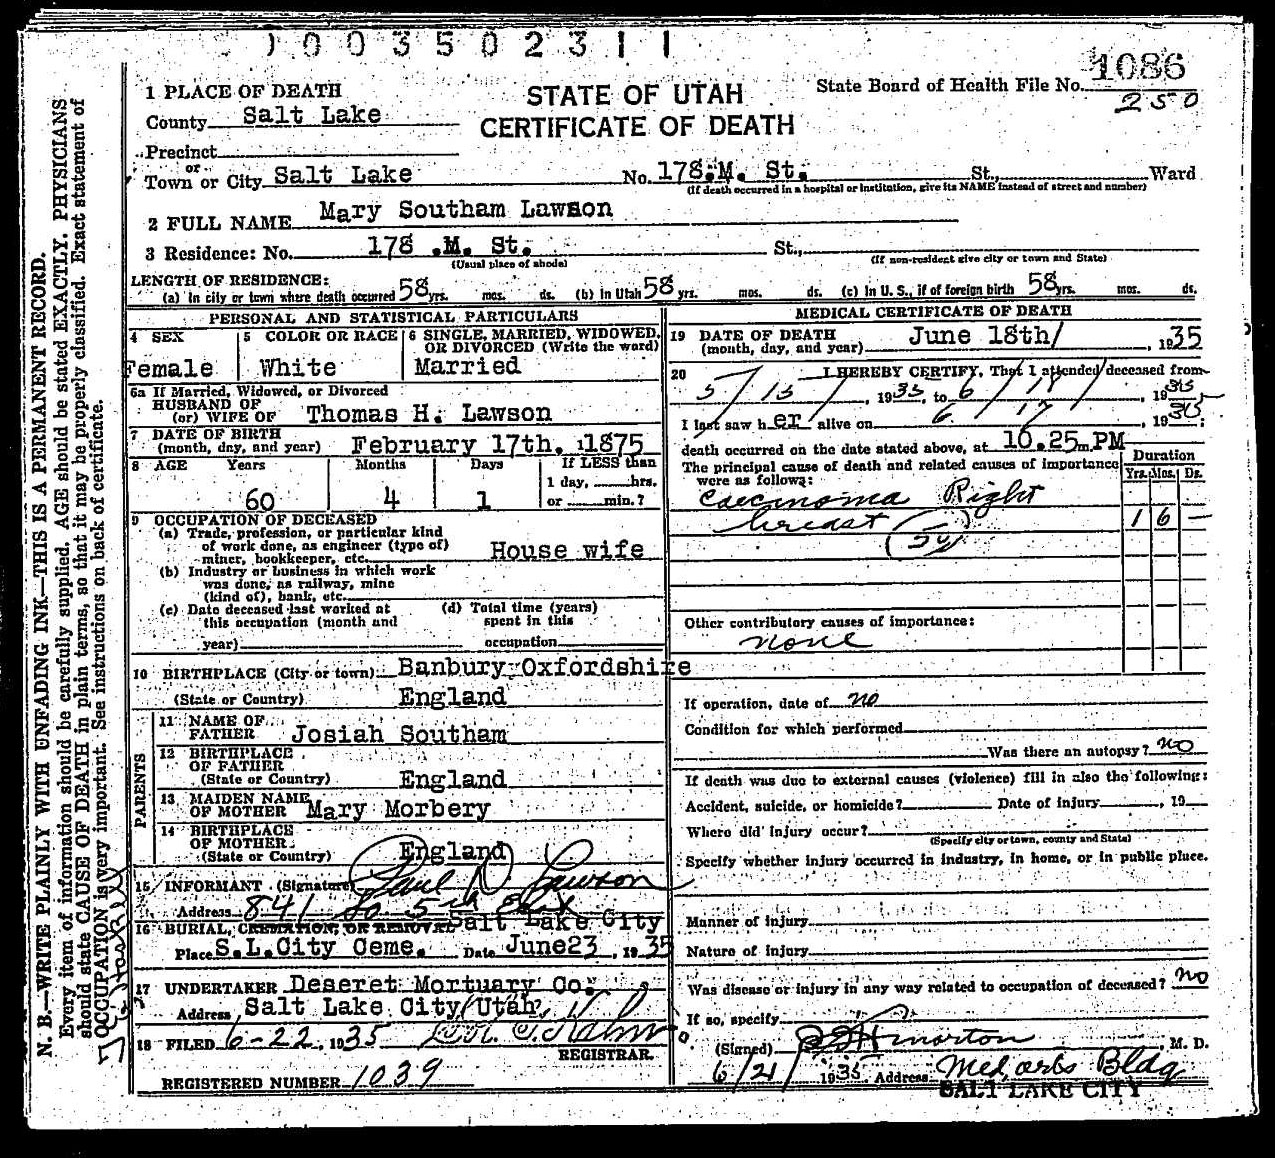 1003502311
1 PLACE OF DEATH
STATE OF UTAH
CERTIFICATE OF DEATH
State Board of Health File No. 1086
250
County Salt Lake
Precinct
or
Town or City Salt Lake No. 178 M. St. St., Ward
(If death occurred in a hospital or institution, give its NAME instead of street and number)
2 FULL NAME Mary Southam Lawson
3 Residence: No. 178 .M. St. St.,
(Usual place of abode) (If non-resident give city or town and State)
LENGTH OF RESIDENCE:
(a) In city or town where death occurred 58 yrs. mos. ds. (b) In Utah 58 yrs. mos. ds. (c) In U. S., if of foreign birth 58 yrs. mos. ds.
PERSONAL AND STATISTICAL PARTICULARS
4 SEX
Female
5 COLOR OR RACE
White
6 SINGLE, MARRIED, WIDOWED, OR DIVORCED (Write the word)
Married
6a If Married, Widowed, or Divorced
HUSBAND OF
(or) WIFE OF Thomas H. Lawson
7 DATE OF BIRTH
(month, day, and year) February 17th. 1875
8 AGE Years Months Days If LESS than
1 day, hrs.
60 4 1 or min.?
9 OCCUPATION OF DECEASED
(a) Trade, profession, or particular kind
of work done, as engineer (type of)
miner, bookkeeper, etc. House wife
(b) Industry or business in which work
was done, as railway, mine
(kind of), bank, etc.
(c) Date deceased last worked at
this occupation (month and
year)
(d) Total time (years)
spent in this
occupation
10 BIRTHPLACE (City or town) Banbury Oxfordshire
(State or Country) England
PARENTS
11 NAME OF
FATHER Josiah Southam
12 BIRTHPLACE
OF FATHER
(State or Country) England
13 MAIDEN NAME
OF MOTHER Mary Morbery
14 BIRTHPLACE
OF MOTHER
(State or Country) England
15 INFORMANT (Signature) Paul D Lawson
Address 841 So 5th East
Salt Lake City
16 BURIAL, CREMATION, OR REMOVAL
Place S.L.City Ceme. Date June 23, 1935
17 UNDERTAKER Deseret Mortuary Co.
Address Salt Lake City Utah
18 FILED 6-22, 1935
REGISTRAR.
REGISTERED NUMBER 1039
MEDICAL CERTIFICATE OF DEATH
19 DATE OF DEATH
(month, day, and year) June 18th/, 1935
20 I HEREBY CERTIFY, That I attended deceased from
5/15/, 1935, to 6/18/, 1935
I last saw h er alive on 6/17, 1935;
death occurred on the date stated above, at 10.25 m. PM
The principal cause of death and related causes of importance
were as follows:
Duration
Yrs. Mos. Ds.
Carcinoma Right
breast 1 6 —
(50)
Other contributory causes of importance:
none
If operation, date of no
Condition for which performed
Was there an autopsy? no
If death was due to external causes (violence) fill in also the following:
Accident, suicide, or homicide? Date of injury, 19
Where did injury occur?
(Specify city or town, county and State)
Specify whether injury occurred in industry, in home, or in public place.
Manner of injury
Nature of injury
Was disease or injury in any way related to occupation of deceased? no
If so, specify
(Signed) Morton, M. D.
6/21/ 1935 Address Med arts Bldg
SALT LAKE CITY
N. B.—WRITE PLAINLY WITH UNFADING INK—THIS IS A PERMANENT RECORD.
Every item of information should be carefully supplied. AGE should be stated EXACTLY. PHYSICIANS
should state CAUSE OF DEATH in plain terms, so that it may be properly classified. Exact statement of
OCCUPATION is very important. See instructions on back of certificate.